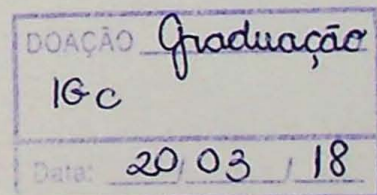 DOAÇÃO Graduação
IGC
Data: 20/03/18